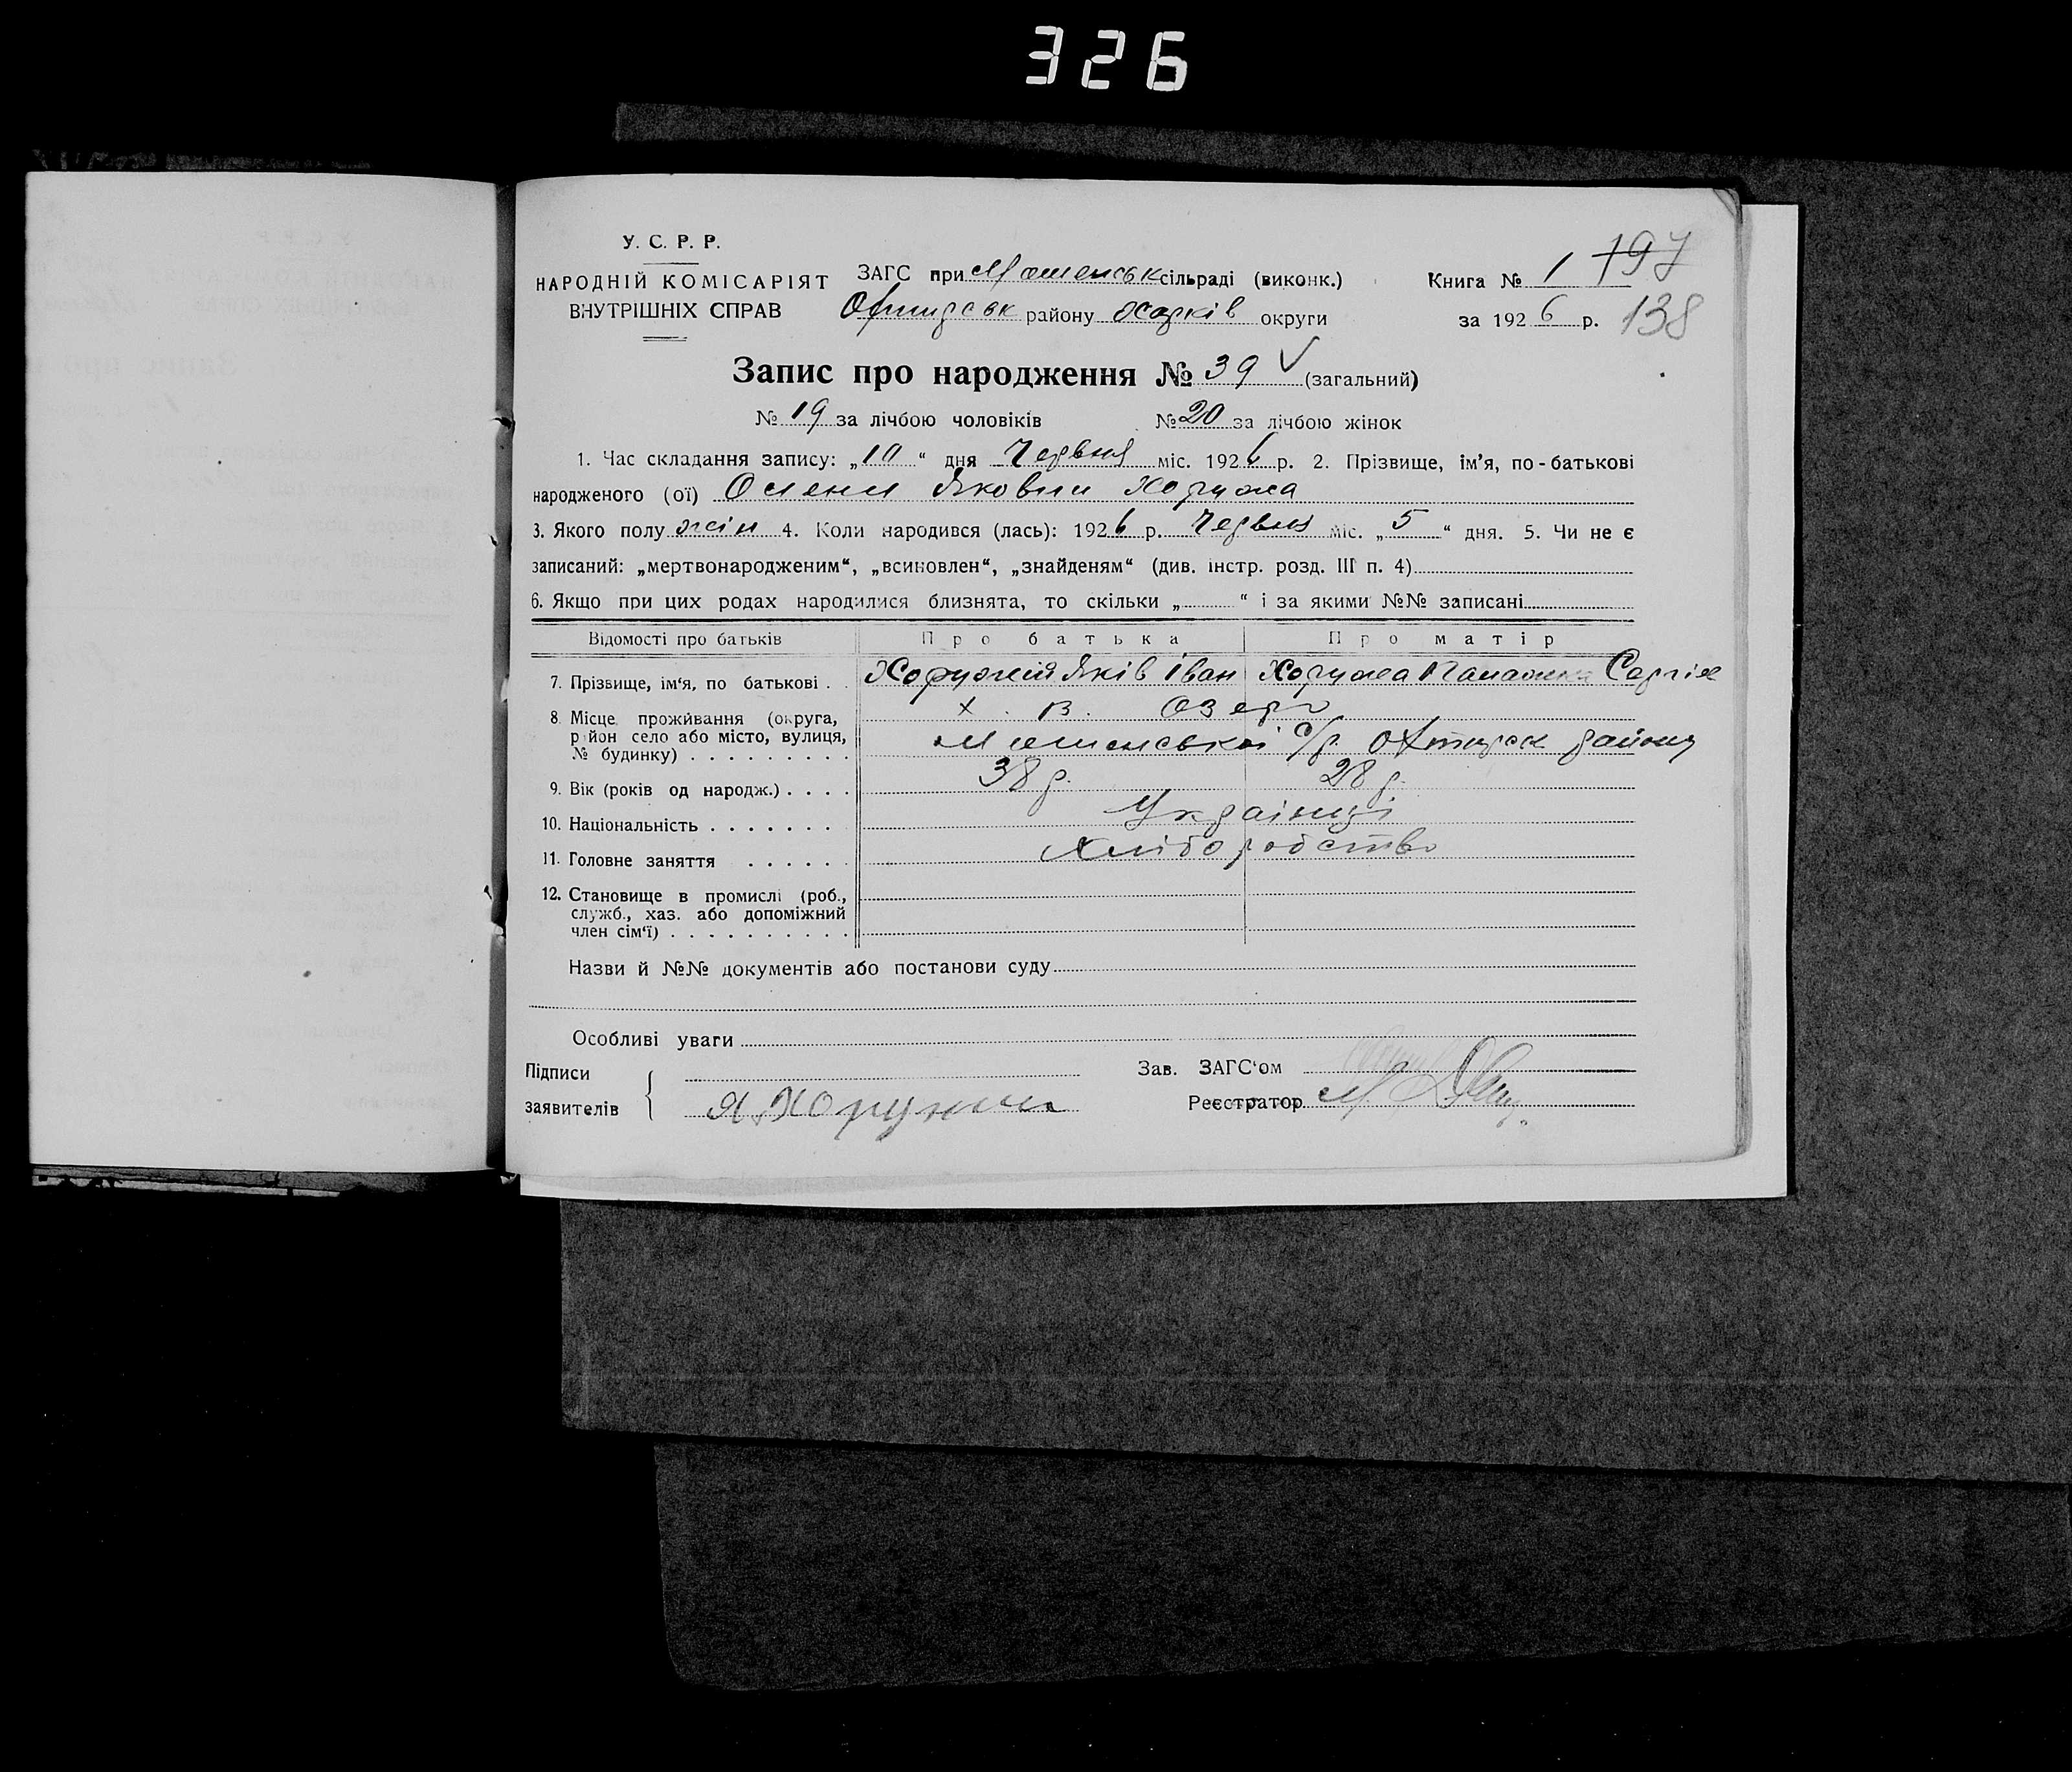 326
У. С. Р. Р.
НАРОДНІЙ КОМІСАРІЯТ
ВНУТРІШНІХ СПРАВ
ЗАГС при сільраді (виконк.)
району Харків округи
Книга № 1 197
за 1926 р. 138
Запис про народження № 39 (загальний)
№ 19 за лічбою чоловіків № 20 за лічбою жінок
1. Час складання запису: „10“ дня Червня міс. 1926 р. 2. Прізвище, ім’я, по-батькові
народженого (ої) Олени Яковни Хоружа
3. Якого полу жін 4. Коли народився (лась): 1926 р. Червня міс. „5“ дня. 5. Чи не є
записаний: „мертвонародженим“, „всиновлен“, „знайденям“ (див. інстр. розд. III п. 4)
6. Якщо при цих родах народилися близнята, то скільки „ “ і за якими №№ записані
Відомості про батьків Про батька Про матір
7. Прізвище, ім‘я, по батькові . . Хоружий Яків Іван Хоружа
8. Місце проживання (округа, х. В. Озеро
район село або місто, вулиця, с/р. району
№ будинку) . . . . . . . . .
9. Вік (років од народж.) . . . . 38 р. 28 р.
10. Національність . . . . . . . Українці
11. Головне заняття . . . . . Хліборобство
12. Становище в промислі (роб.,
служб., хаз. або допоміжний
член сім‘ї) . . . . . . . . . .
Назви й №№ документів або постанови суду
Особливі уваги
Підписи
заявителів Я. Хоружий
Зав. ЗАГС‘ом
Реєстратор